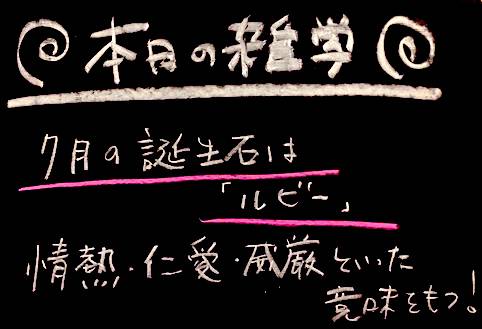 本日の雑学
7月の誕生石は
「ルビー」
情熱・仁愛・威厳といった
意味をもつ!